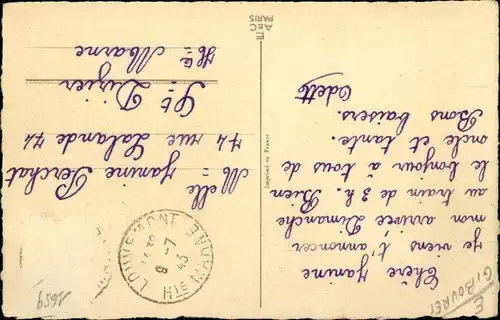 Chère Janine
je viens t'annoncer
mon arrivée Dimanche
au train de 3 h. Bien
le bonjour à tous de
oncle et tante.
Bons baisers.
Odette
AeC
PARIS
Imprimé en France
Melle Janine Perchat
74 rue Lalande 74
St Dizier
Hte Marne
LOUVEMONT
8-7
43
HTE MARNE
1659
E
GIBOUREL